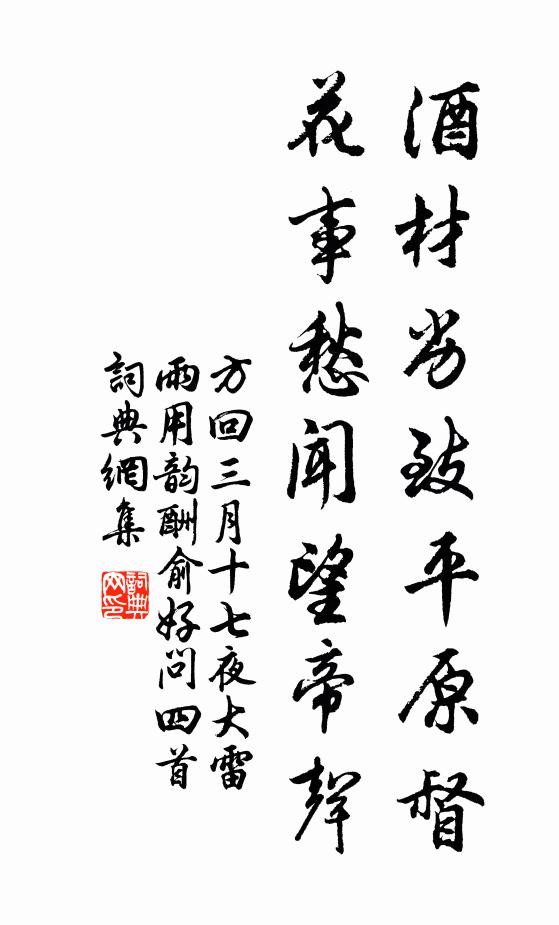 酒材劣致平原督
花事愁聞望帝聲
方回三月十七夜大雷
雨用韵酬俞好問四首
詞典網集
詞典网印